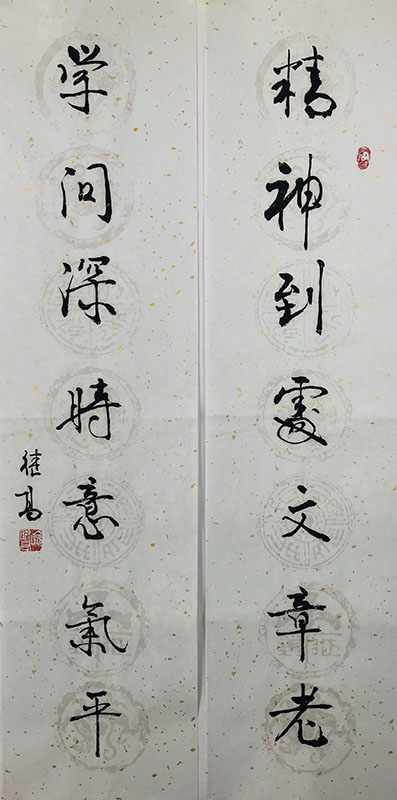 精神到處文章老
学问深時意氣平
继高